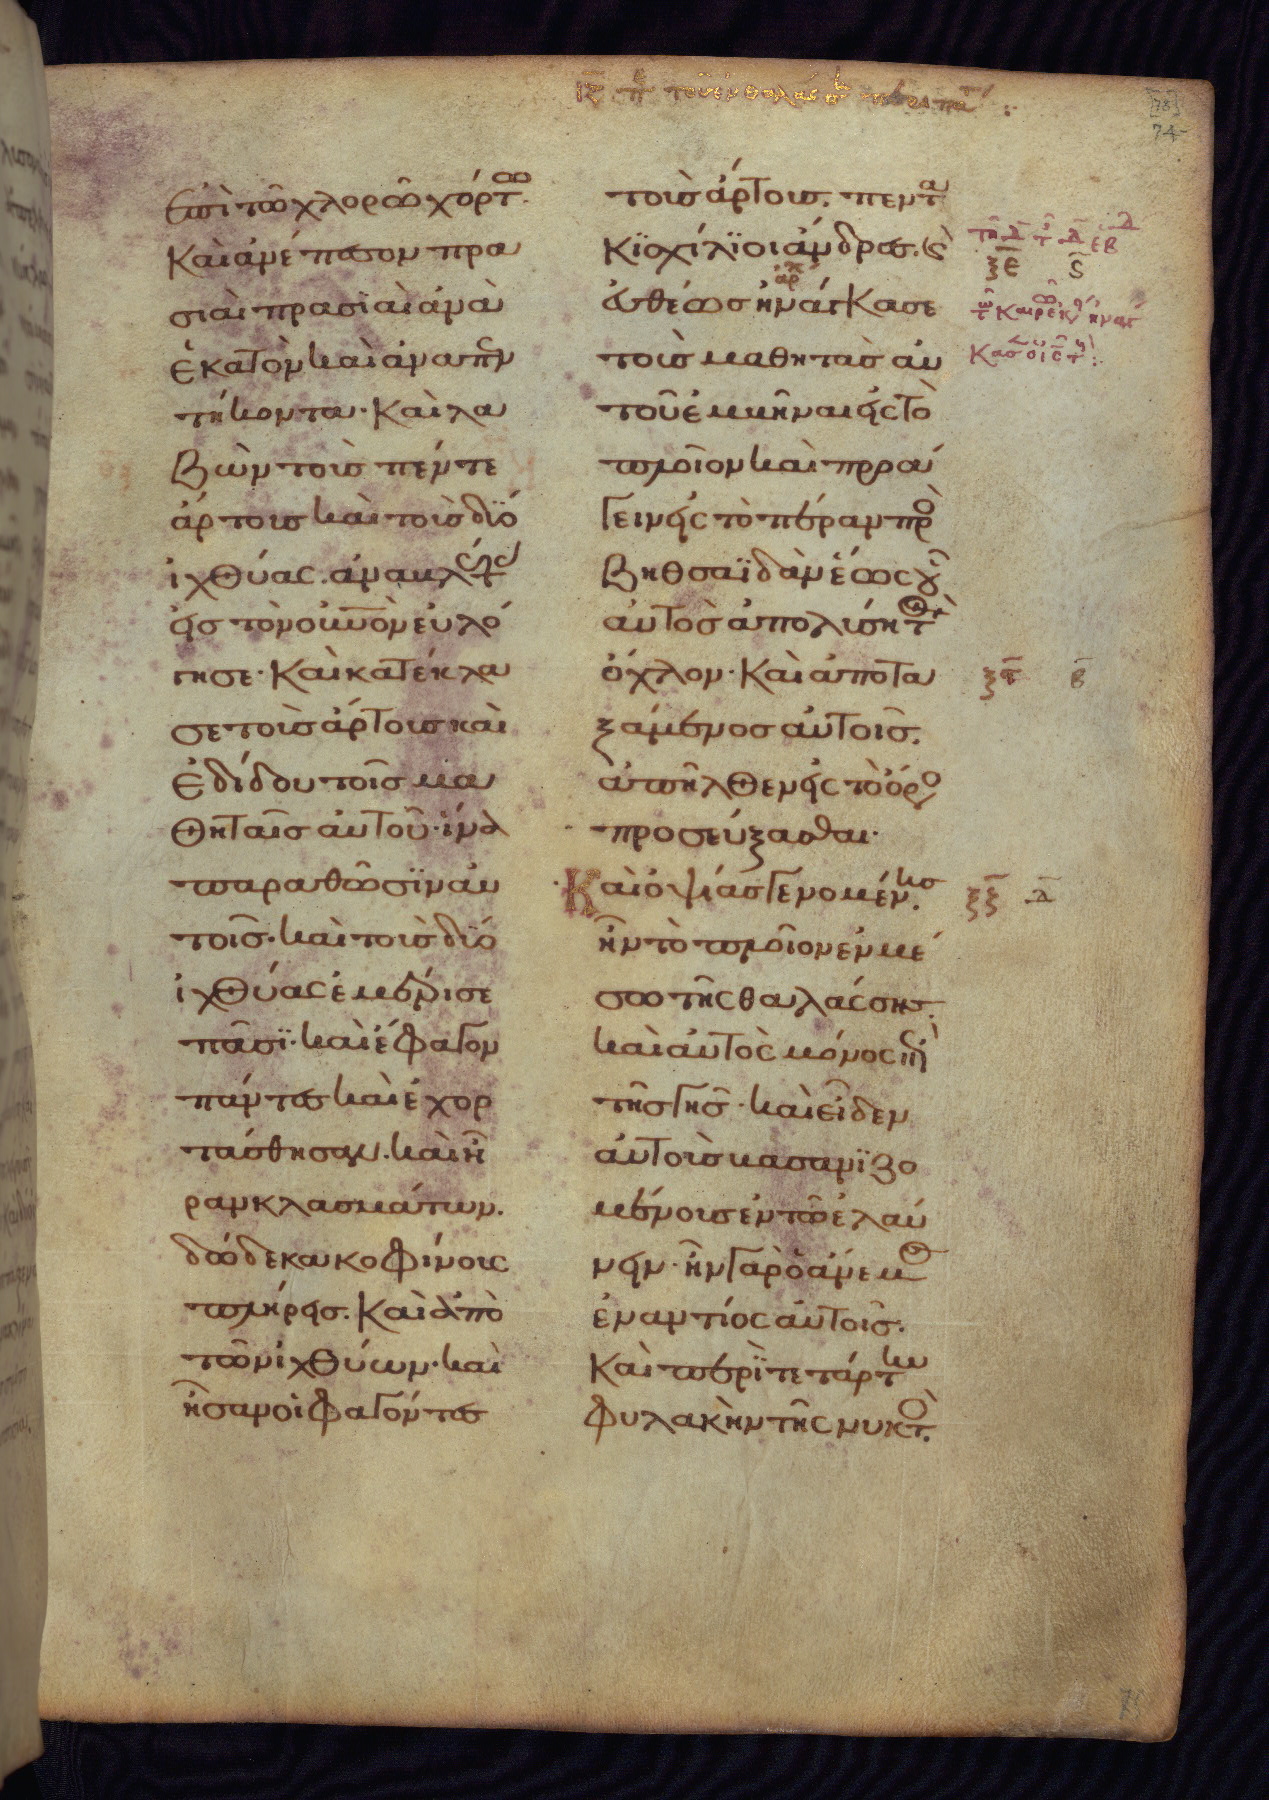 ιζ π τοῦ ἐν θαλάσ περιπα :
[78]
74
ἐπὶ τῶ χλορῶ χόρτω.
Καὶ ἀνέπεσον πρα
σιαὶ πρασϊαὶ ἀνὰ
ἑκατὸν καὶ ἀνα πὲν
τήκοντα· Καὶ λα
βὼν τοὺς πέντε
ἄρτους καὶ τοὺς δϋό
ἰχθύας. ἀναβλέψας
εἰς τὸν οὐνὸν εὐλό
γησε· Καὶ κατέκλα
σε τοὺς ἄρτους καὶ
ἐδίδου τοῖς μα
θηταῖς αὐτοῦ· ἵνα
παραθῶσϊν αὐ
τοῖς· καὶ τοὺς δϋό
ἰχθύας ἐμέρισε
πᾶσϊ· καὶ ἔφαγον
πάντες καὶ ἐχορ
τάσθησαν. καὶ ἦ
ραν κλασμάτων.
δώδεκα κοφίνους
πλήρεις. Καὶ ἀπὸ
τῶν ἰχθύων· καὶ
ἦσαν οἱ φαγόντες
τοὺς ἄρτους. πεντα
κϊσχίλϊοι ἄνδρες. Καὶ
εὐθέως ἠνάγκασε
τοὺς μαθητὰς αὐ
τοῦ ἐμβῆναι εἰς τὸ
πλοῖον καὶ προά
γειν εἰς τὸ πέραν πρὸ
Βηθσαϊδὰν ἕως οὗ
αὐτὸς ἀπολύσῃ τὸν
ὄχλον· Καὶ ἀποτα
ξάμενος αὐτοῖς.
ἀπῆλθεν εἰς τὸ ὄρο
προσεύξασθαι·
Καὶ ὀψίας γενομένης.
ἦν τὸ πλοῖον ἐν μέ
σω τῆς θαλάσσης.
καὶ αὐτὸς μόνος ἐπὶ
τῆς γῆς· καὶ εἶδεν
αὐτοὺς βασανϊζο
μένους ἐν τῶ ἐλαύ
νειν· ἦν γὰρ ὁ ἄνεμ
ἐναντίος αὐτοῖς.
Καὶ περὶ τετάρτην
φυλακὴν τῆς νυκτὸ.
ξε ς
ξς β
ξζ δ
75